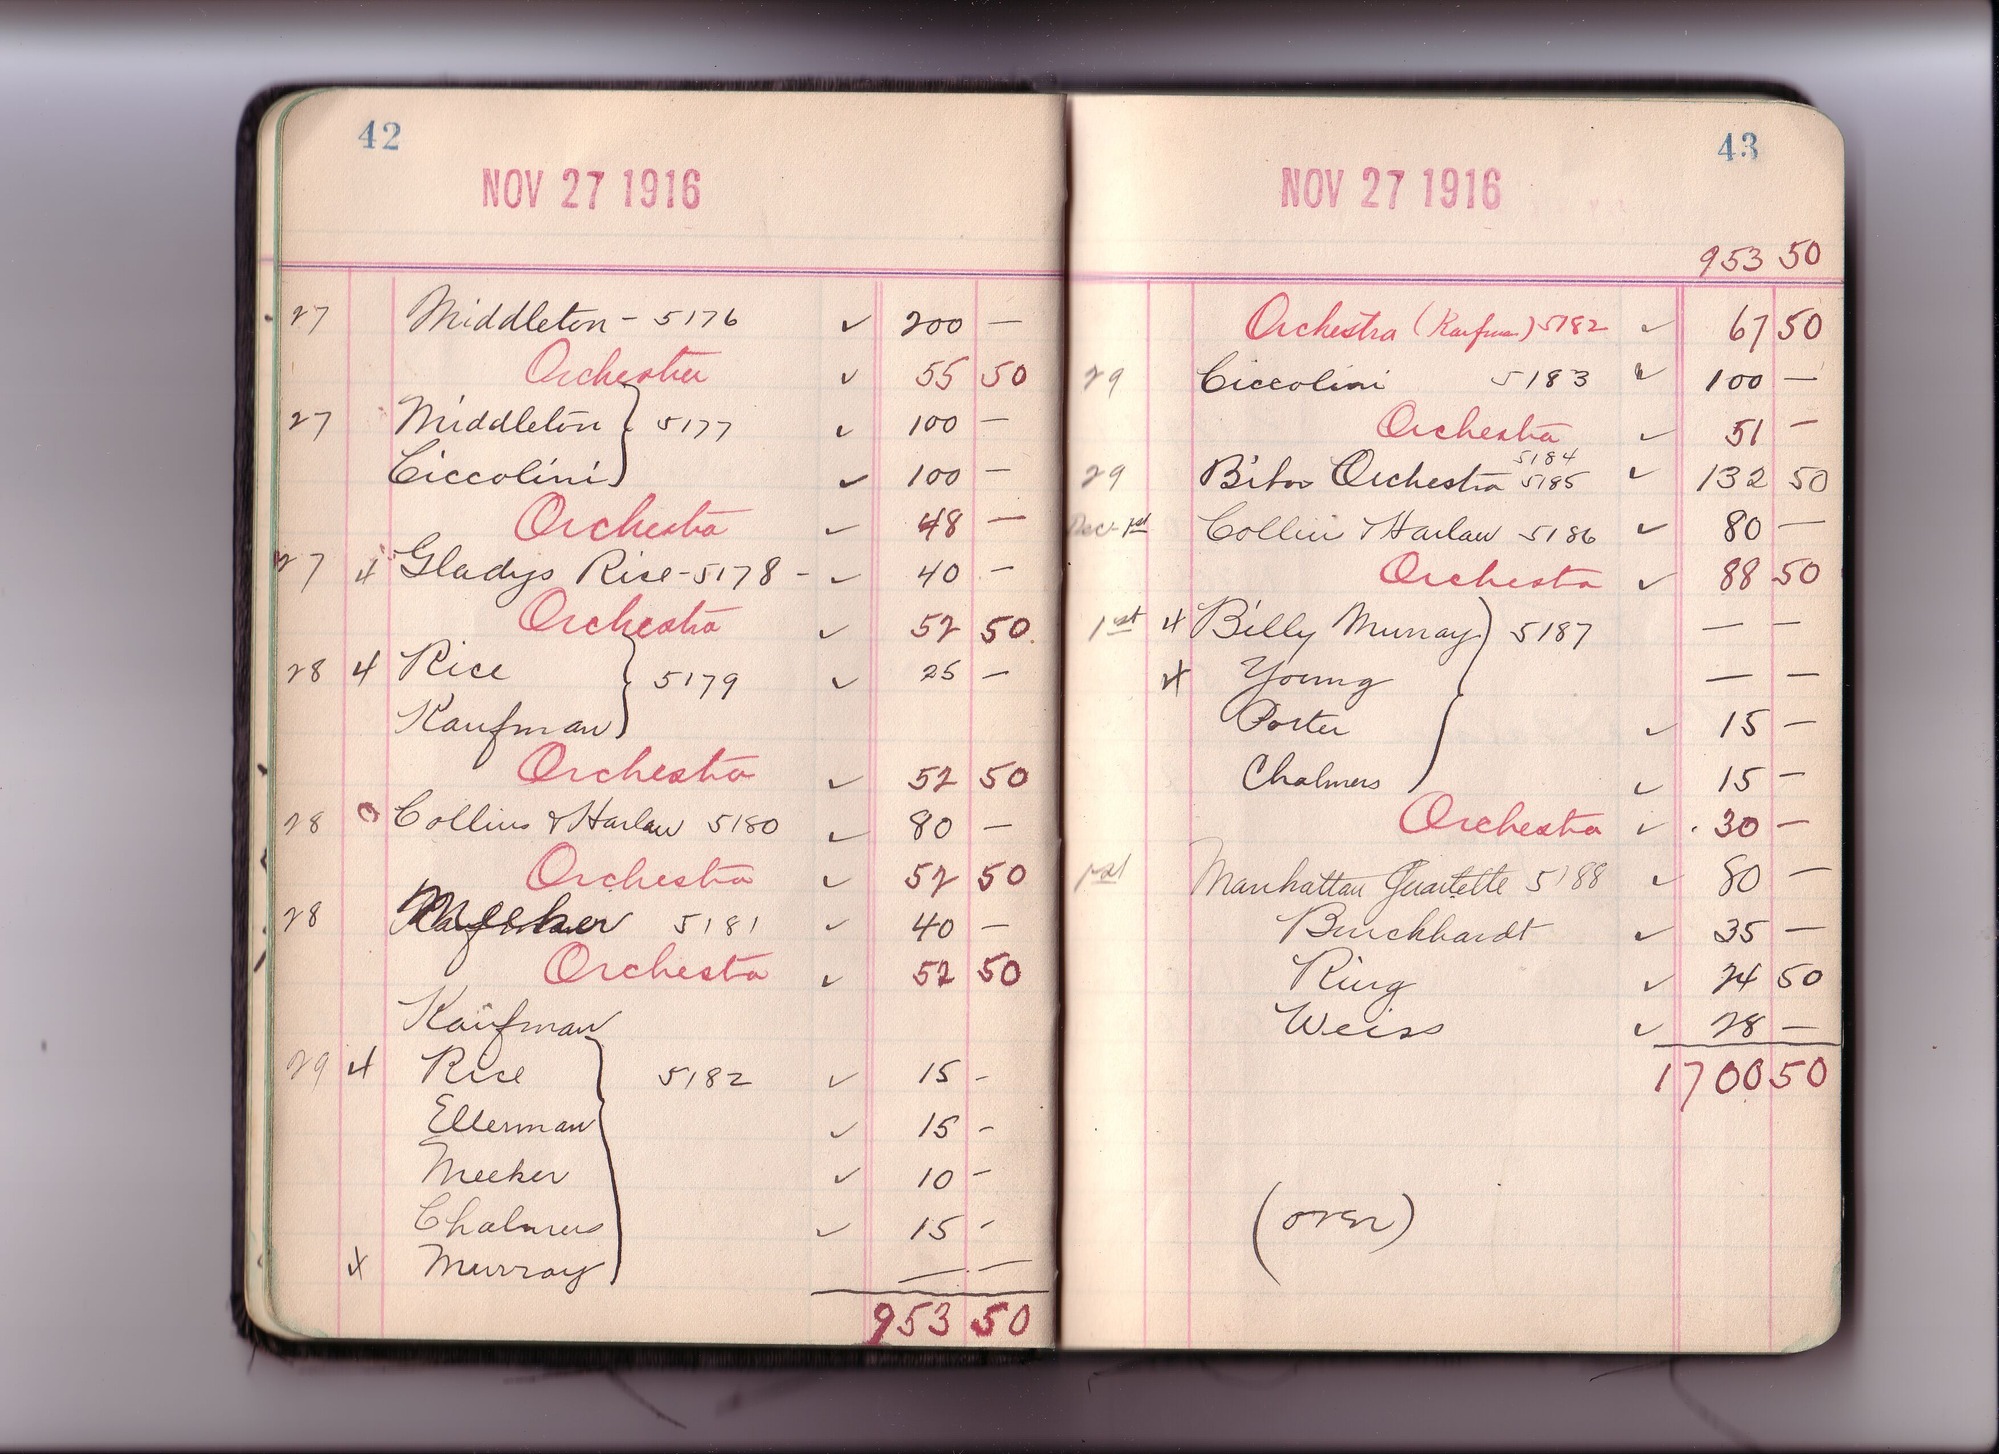 42
NOV 27 1916
27 Middleton - 5176 ✓ 200 —
Orchestra ✓ 55 50
27 Middleton } 5177 ✓ 100 —
Ciccolini ✓ 100 —
Orchestra ✓ 48 —
27 x Gladys Rice - 5178 - ✓ 40 —
Orchestra ✓ 52 50
28 x Rice } 5179 ✓ 25 —
Kaufman
Orchestra ✓ 52 50
28 Collins & Harlan 5180 ✓ 80 —
Orchestra ✓ 52 50
28 Meeker 5181 ✓ 40 —
Orchestra ✓ 52 50
Kaufman
29 x Rice } 5182 ✓ 15 -
Ellerman ✓ 15 -
Meeker ✓ 10 -
Chalmers ✓ 15 -
x Murray — —
953 50
43
NOV 27 1916
953 50
Orchestra (Kaufman) 5182 ✓ 67 50
29 Ciccolini 5183 ✓ 100 —
Orchestra ✓ 51 —
5184
29 Orchestra 5185 ✓ 132 50
Dec 1st Collins & Harlan 5186 ✓ 80 —
Orchestra ✓ 88 50
1st x Billy Murray } 5187 — —
x Young — —
Porter ✓ 15 —
Chalmers ✓ 15 —
Orchestra ✓ 30 —
1st Manhattan Quartette 5188 ✓ 80 —
Burckhardt ✓ 35 —
Ring ✓ 24 50
Weiss ✓ 28 —
1700 50
(over)